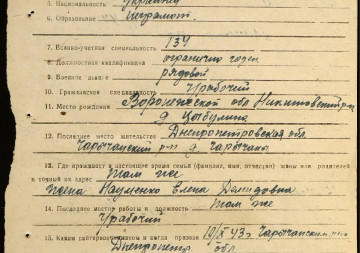 5. Национальность Украинец
6. Образование Неграмот.
7. Военно-учетная специальность 134
8. Должностная квалификация ограничено годен
9. Военное звание рядовой
10. Гражданская специальность Ч/рабочий
11. Место рождения Воронежской обл Никитовский р-н
д. Цыбулина
12. Последнее место жительства Днепропетровская обл.
Чарычанский р-н д. Чарычана
13. Где проживает в настоящее время семья (фамилия, имя, отчество) жены или родителей
и точный их адрес Там же
жена Науменко Елена Демидовна
14. Последнее место работы и должность Там же
Ч/рабочий
15. Каким райгорвоенкоматом и когда призван 10/X 43 г. Чарычанским
Днепропетр. обл.